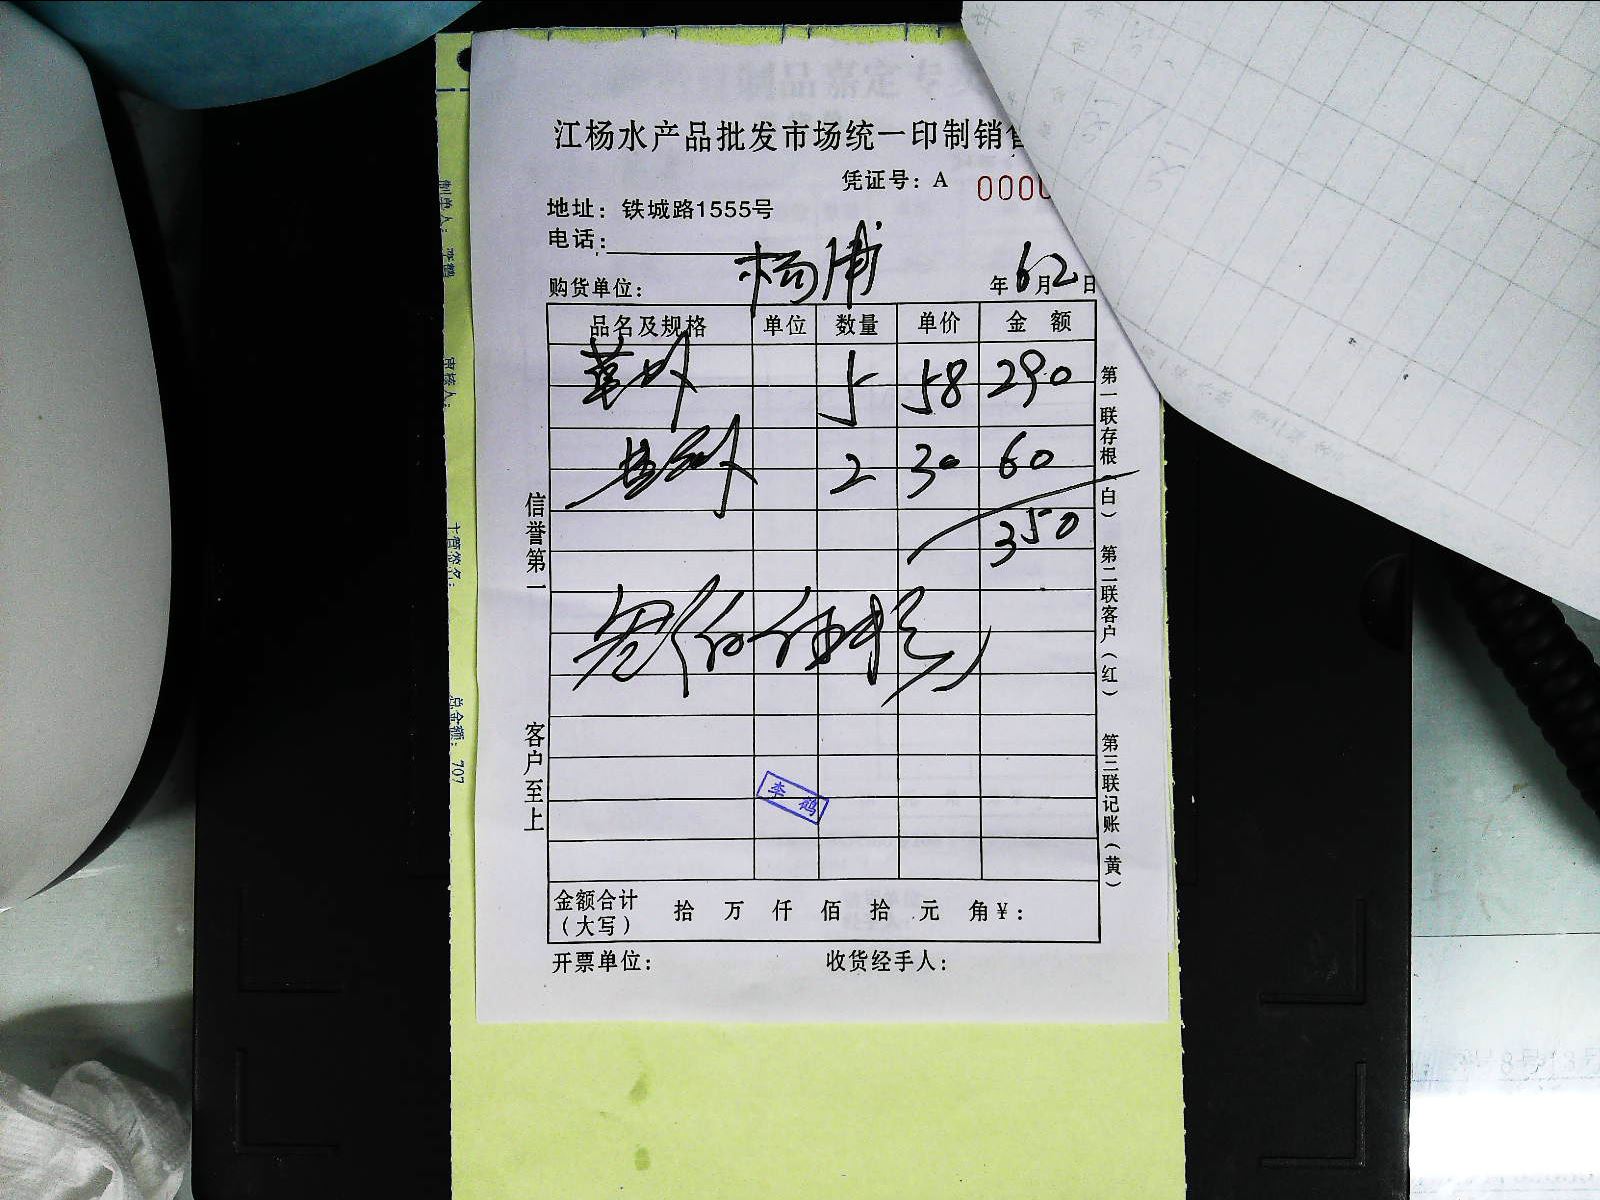 江杨水产品批发市场统一印制销售
凭证号：A 0000
地址：铁城路1555号
电话：
购货单位： 杨浦 年6月2日
品名及规格 单位 数量 单价 金 额
5 58 290
2 30 60
350
信誉第一
客户至上
李 鹤
第一联存根（白） 第二联客户（红） 第三联记账（黄）
金额合计（大写） 拾 万 仟 佰 拾 元 角￥：
开票单位： 收货经手人：
制单人： 李鹤
审核人：
主管签名：
总金额： 707